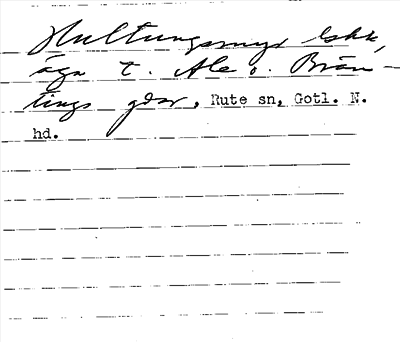 Hultungsmyr lskk,
äga t. Ale o. Brän-
tings gdar, Rute sn, Gotl. N.
hd.